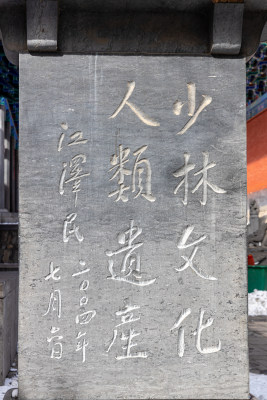 少林文化
人類遺產
江澤民
二〇〇四年
七月